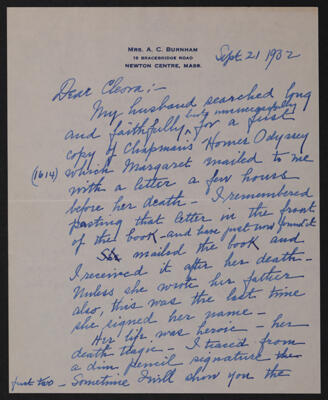 MRS. A. C. BURNHAM
15 BRACEBRIDGE ROAD
NEWTON CENTRE, MASS.
Sept. 21 1932
Dear Cleora;-
My husband searched long
and faithfully, but unsuccessfully for a first
copy of Chapman's Homer Odyssey
(1614) which Margaret mailed to me
with a letter a few hours
before her death - I remembered
pasting that letter in the front
of the book - and have just now found it
mailed the book and
I received it after her death -
Unless she wrote her father
also, this was the last time
she signed her name -
Her life was heroic - her
death tragic - I traced from
a dim pencil signature the
first two - Sometime I will show you the